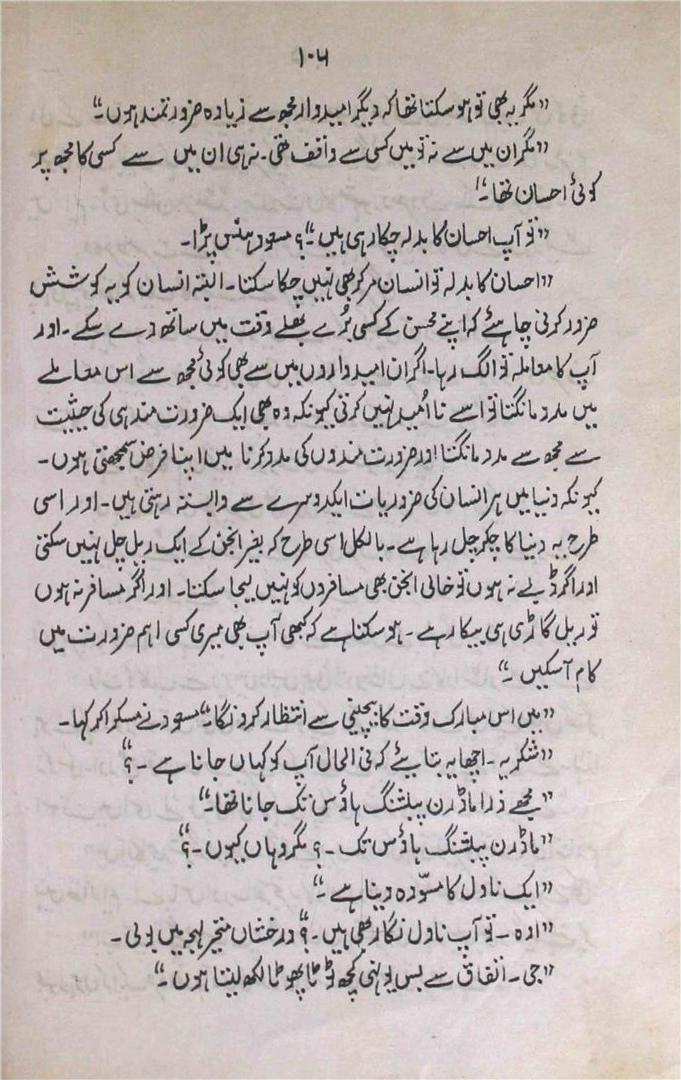 ۱۰۶
”مگر یہ بھی تو ہو سکتا تھا کہ دیگر امیدوار مجھ سے زیادہ ضرورتمند ہوں۔“
”مگر ان میں سے نہ تو میں کسی سے واقف تھی۔ نہ ہی ان میں سے کسی کا مجھ پر
کوئی احسان تھا۔“
”تو آپ احسان کا بدلہ چکا رہی ہیں۔“؟ مسعود ہنس پڑا۔
”احسان کا بدلہ تو انسان مر کر بھی نہیں چکا سکتا۔ البتہ انسان کو یہ کوشش
ضرور کرنی چاہئے کہ اپنے محسن کے کسی بُرے بھلے وقت میں ساتھ دے سکے۔ اور
آپ کا معاملہ تو الگ رہا۔ اگر ان امیدواروں میں سے بھی کوئی مجھ سے اس معاملے
میں مدد مانگتا تو اسے نا اُمید نہیں کرتی کیونکہ وہ بھی ایک ضرورت مند ہی کی حیثیت
سے مجھ سے مدد مانگتا اور ضرورت مندوں کی مدد کرنا میں اپنا فرض سمجھتی ہوں۔
کیونکہ دنیا میں ہر انسان کی ضروریات ایکدوسرے سے وابستہ رہتی ہیں۔ اور اسی
طرح یہ دنیا کا چکر چل رہا ہے۔ بالکل اسی طرح کہ بغیر انجن کے ایک ریل چل نہیں سکتی
اور اگر ڈبے نہ ہوں تو خالی انجن بھی مسافروں کو نہیں لیجا سکتا۔ اور اگر مسافر نہ ہوں
تو ریل گاڑی ہی بیکار ہے۔ ہو سکتا ہے کہ کبھی آپ بھی میری کسی اہم ضرورت میں
کام آسکیں۔“
”میں اس مبارک وقت کا بیچینی سے انتظار کرونگا۔“ مسعود نے مسکرا کر کہا۔
”شکریہ۔ اچھا یہ بتایئے کہ فی الحال آپ کو کہاں جانا ہے۔؟“
”مجھے ذرا ماڈرن پبلشنگ ہاؤس تک جانا تھا۔“
”ماڈرن پبلشنگ ہاؤس تک۔؟ مگر وہاں کیوں۔؟“
”ایک ناول کا مسوّدہ دینا ہے۔“
”اوہ۔ تو آپ ناول نگار بھی ہیں۔؟“ درخشاں متحیر لہجہ میں بولی۔
”جی۔ اتفاق سے بس یونہی کچھ ٹوٹا پھوٹا لکھ لیتا ہوں۔“